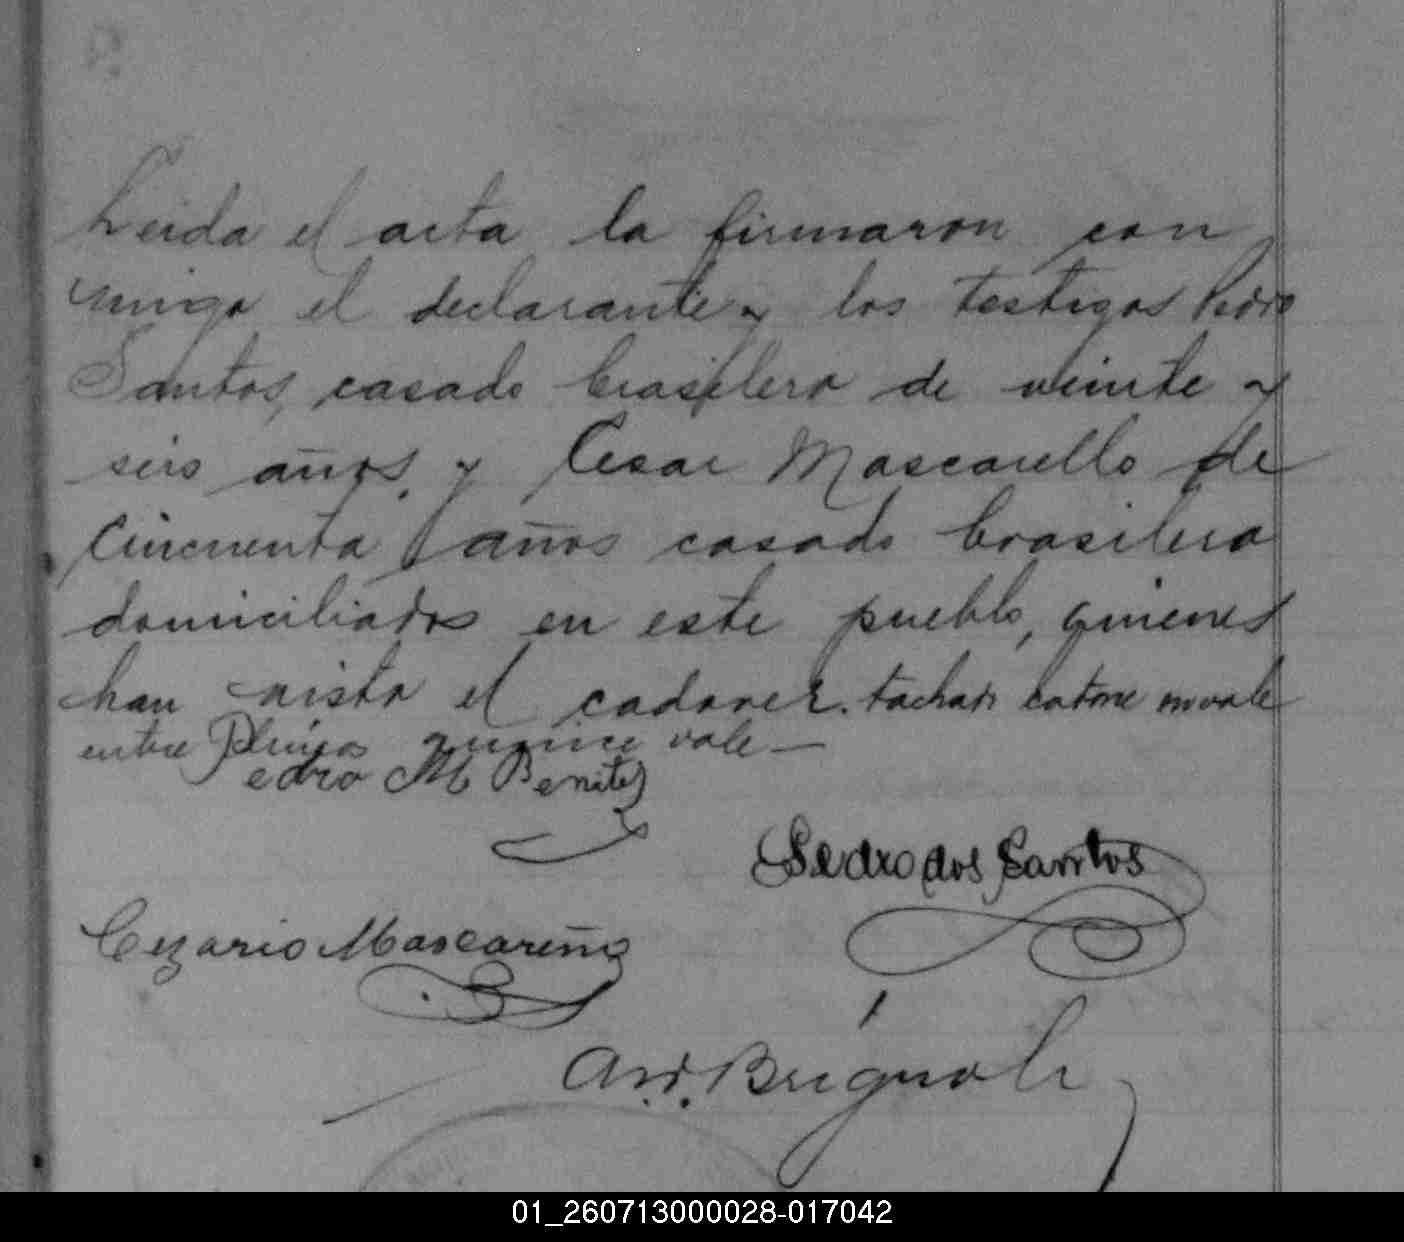 Leida el acta la firmaron con
migo el declarante y los testigos Pedro
Santos, casado brasilero de veinte y
seis años y Cesar Mascarello de
Cincuenta años casado brasilero
domiciliados en este pueblo, quienes
han visto el cadaver. tachado catorce no vale
entre lineas quince vale—
Pedro M Benites
Pedro dos Santos
Cezario Mascareño
Brignoli
01_260713000028-017042